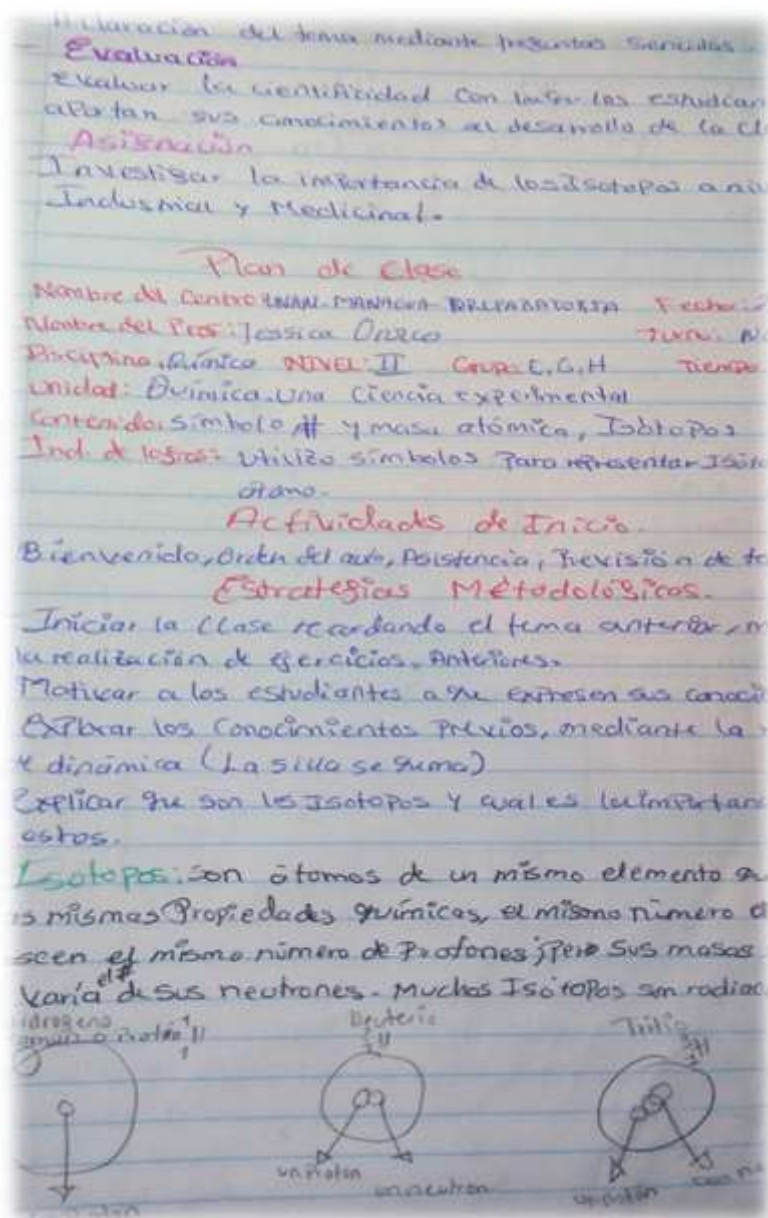 del tema mediante preguntas sencillas.
Evaluación
Evaluar la cientificidad con los estudian
aportan sus conocimientos al desarrollo de la cl
Asignación
Investigar la importancia de los Isotopos a niv
Industrial y Medicinal.
Plan de clase
Nombre del Centro UNAN-MANAGUA PREPARATORIA Fecha:
Nombre del Prof: Jessica Orozco Turno: N
Disciplina: Química NIVEL: II Grup: E, G, H Tiempo
Unidad: Química una Ciencia experimental
Contenido: símbolo # y masa atómica, Isótopos
Ind. de logros: Utilizo símbolos Para representar Isóto
átomo.
Actividads de Inicio.
Bienvenida, Orden del aula, Asistencia, Revisión de t
Estrategias Metodológicas.
Iniciar la Clase recordando el tema anterior, m
la realización de ejercicios Anteriores.
Motivar a los estudiantes a que expresen sus conoci
Explorar los Conocimientos Previos, mediante la
dinámica (La silla se quema)
Explicar que son los Isotopos y cual es la importan
estos.
Isotopos: Son átomos de un mismo elemento qu
s mismas Propiedades químicas, el mismo número d
seen el mismo número de Protones, Pero sus masas
Varía el # de sus neutrones. Muchos Isótopos son radiac
idrogeno Deuterio Tritio
Protio 1 H 1 H H
un Protón un neutron un protón